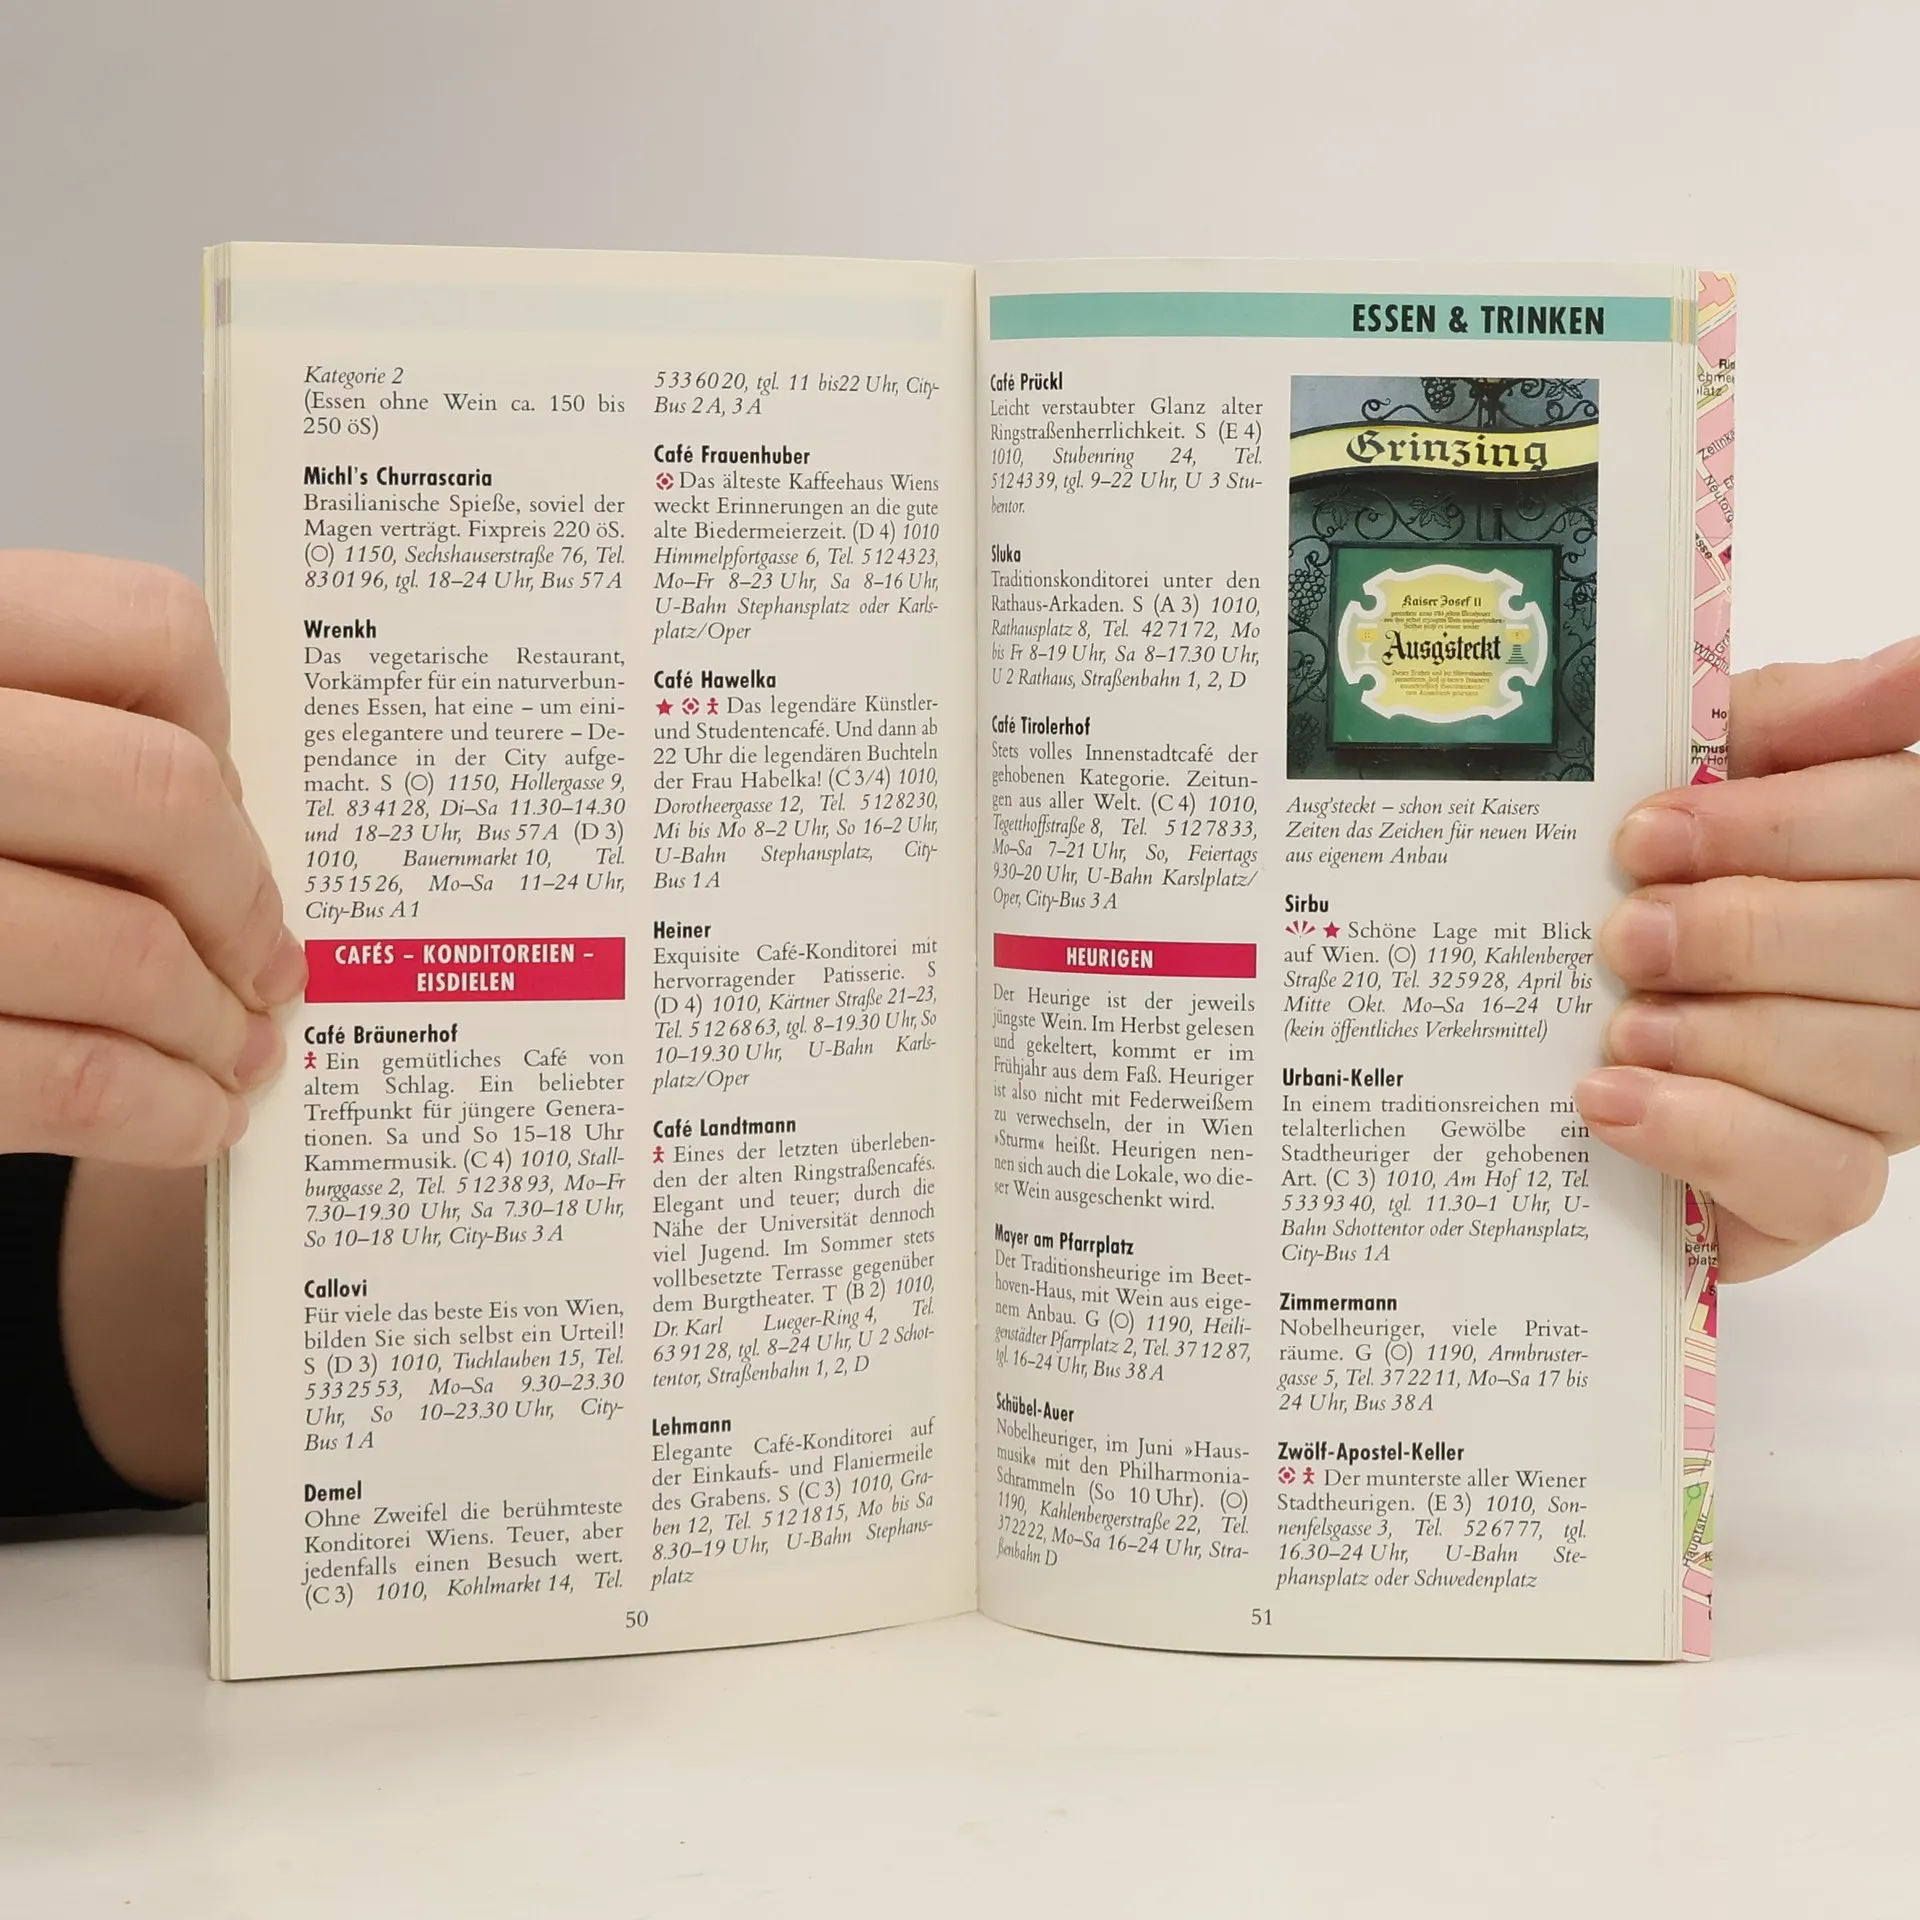 Kategorie 2
(Essen ohne Wein ca. 150 bis
250 öS)
Michl's Churrascaria
Brasilianische Spieße, soviel der
Magen verträgt. Fixpreis 220 öS.
(O) 1150, Sechshauserstraße 76, Tel.
83 01 96, tgl. 18–24 Uhr, Bus 57 A
Wrenkh
Das vegetarische Restaurant,
Vorkämpfer für ein naturverbun-
denes Essen, hat eine – um eini-
ges elegantere und teurere – De-
pendance in der City aufge-
macht. S (O) 1150, Hollergasse 9,
Tel. 83 41 28, Di–Sa 11.30–14.30
und 18–23 Uhr, Bus 57 A (D 3)
1010, Bauernmarkt 10, Tel.
5 35 15 26, Mo–Sa 11–24 Uhr,
City-Bus A 1
CAFÉS – KONDITOREIEN –
EISDIELEN
Café Bräunerhof
Ein gemütliches Café von
altem Schlag. Ein beliebter
Treffpunkt für jüngere Genera-
tionen. Sa und So 15–18 Uhr
Kammermusik. (C 4) 1010, Stall-
burggasse 2, Tel. 5 12 38 93, Mo–Fr
7.30–19.30 Uhr, Sa 7.30–18 Uhr,
So 10–18 Uhr, City-Bus 3 A
Callovi
Für viele das beste Eis von Wien,
bilden Sie sich selbst ein Urteil!
S (D 3) 1010, Tuchlauben 15, Tel.
5 33 25 53, Mo–Sa 9.30–23.30
Uhr, So 10–23.30 Uhr, City-
Bus 1 A
Demel
Ohne Zweifel die berühmteste
Konditorei Wiens. Teuer, aber
jedenfalls einen Besuch wert.
(C 3) 1010, Kohlmarkt 14, Tel.
5 33 60 20, tgl. 11 bis22 Uhr, City-
Bus 2 A, 3 A
Café Frauenhuber
Das älteste Kaffeehaus Wiens
weckt Erinnerungen an die gute
alte Biedermeierzeit. (D 4) 1010
Himmelpfortgasse 6, Tel. 5 12 43 23,
Mo–Fr 8–23 Uhr, Sa 8–16 Uhr,
U-Bahn Stephansplatz oder Karls-
platz/Oper
Café Hawelka
Das legendäre Künstler-
und Studentencafé. Und dann ab
22 Uhr die legendären Buchteln
der Frau Habelka! (C 3/4) 1010,
Dorotheergasse 12, Tel. 5 12 82 30,
Mi bis Mo 8–2 Uhr, So 16–2 Uhr,
U-Bahn Stephansplatz, City-
Bus 1 A
Heiner
Exquisite Café-Konditorei mit
hervorragender Patisserie. S
(D 4) 1010, Kärtner Straße 21–23,
Tel. 5 12 68 63, tgl. 8–19.30 Uhr, So
10–19.30 Uhr, U-Bahn Karls-
platz/Oper
Café Landtmann
Eines der letzten überleben-
den der alten Ringstraßencafés.
Elegant und teuer; durch die
Nähe der Universität dennoch
viel Jugend. Im Sommer stets
vollbesetzte Terrasse gegenüber
dem Burgtheater. T (B 2) 1010,
Dr. Karl Lueger-Ring 4, Tel.
63 91 28, tgl. 8–24 Uhr, U 2 Schot-
tentor, Straßenbahn 1, 2, D
Lehmann
Elegante Café-Konditorei auf
der Einkaufs- und Flaniermeile
des Grabens. S (C 3) 1010, Gra-
ben 12, Tel. 5 12 18 15, Mo bis Sa
8.30–19 Uhr, U-Bahn Stephans-
platz
50
ESSEN & TRINKEN
Café Prückl
Leicht verstaubter Glanz alter
Ringstraßenherrlichkeit. S (E 4)
1010, Stubenring 24, Tel.
5 12 43 39, tgl. 9–22 Uhr, U 3 Stu-
bentor.
Sluka
Traditionskonditorei unter den
Rathaus-Arkaden. S (A 3) 1010,
Rathausplatz 8, Tel. 42 71 72, Mo
bis Fr 8–19 Uhr, Sa 8–17.30 Uhr,
U 2 Rathaus, Straßenbahn 1, 2, D
Café Tirolerhof
Stets volles Innenstadtcafé der
gehobenen Kategorie. Zeitun-
gen aus aller Welt. (C 4) 1010,
Tegetthoffstraße 8, Tel. 5 12 78 33,
Mo–Sa 7–21 Uhr, So, Feiertags
9.30–20 Uhr, U-Bahn Karslplatz/
Oper, City-Bus 3 A
HEURIGEN
Der Heurige ist der jeweils
jüngste Wein. Im Herbst gelesen
und gekeltert, kommt er im
Frühjahr aus dem Faß. Heuriger
ist also nicht mit Federweißem
zu verwechseln, der in Wien
»Sturm« heißt. Heurigen nen-
nen sich auch die Lokale, wo die-
ser Wein ausgeschenkt wird.
Mayer am Pfarrplatz
Der Traditionsheurige im Beet-
hoven-Haus, mit Wein aus eige-
nem Anbau. G (O) 1190, Heili-
genstädter Pfarrplatz 2, Tel. 37 12 87,
tgl. 16–24 Uhr, Bus 38 A
Schübel-Auer
Nobelheuriger, im Juni »Haus-
musik« mit den Philharmonia-
Schrammeln (So 10 Uhr). (O)
1190, Kahlenbergerstraße 22, Tel.
37 22 22, Mo–Sa 16–24 Uhr, Stra-
ßenbahn D
Grinzing
Kaiser Josef II
Ausg'steckt
Ausg'steckt – schon seit Kaisers
Zeiten das Zeichen für neuen Wein
aus eigenem Anbau
Sirbu
Schöne Lage mit Blick
auf Wien. (O) 1190, Kahlenberger
Straße 210, Tel. 32 59 28, April bis
Mitte Okt. Mo–Sa 16–24 Uhr
(kein öffentliches Verkehrsmittel)
Urbani-Keller
In einem traditionsreichen mi
telalterlichen Gewölbe ein
Stadtheuriger der gehobenen
Art. (C 3) 1010, Am Hof 12, Tel.
5 33 93 40, tgl. 11.30–1 Uhr, U-
Bahn Schottentor oder Stephansplatz,
City-Bus 1 A
Zimmermann
Nobelheuriger, viele Privat-
räume. G (O) 1190, Armbruster-
gasse 5, Tel. 37 22 11, Mo–Sa 17 bis
24 Uhr, Bus 38 A
Zwölf-Apostel-Keller
Der munterste aller Wiener
Stadtheurigen. (E 3) 1010, Son-
nenfelsgasse 3, Tel. 52 67 77, tgl.
16.30–24 Uhr, U-Bahn Ste-
phansplatz oder Schwedenplatz
51